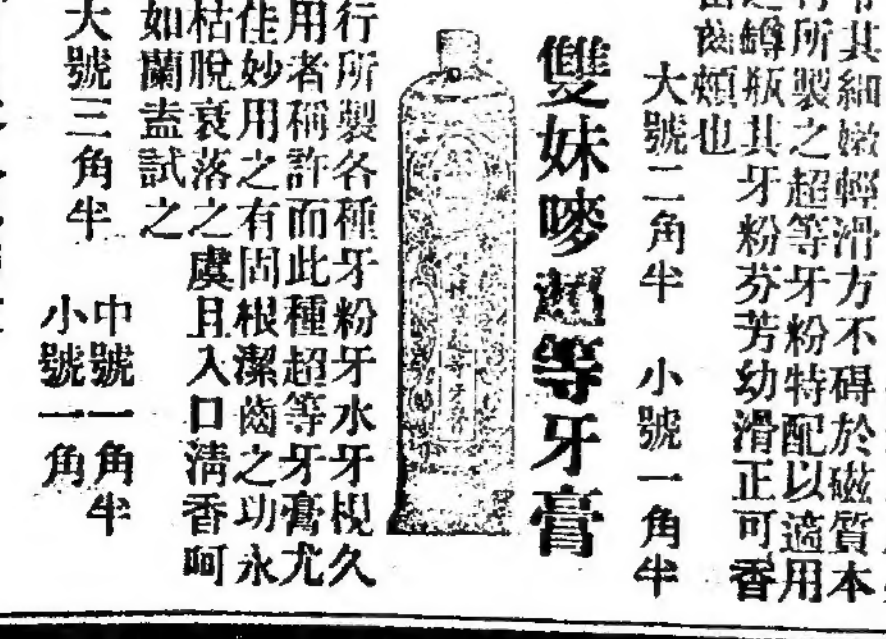 其細嫩輕滑方不碍於磁質本
所製之超等牙粉特配以適用
罇瓶其牙粉芬芳幼滑正可香
齒頰也
大號二角半 小號一角半
雙妹嘜超等牙膏
行所製各種牙粉牙水牙梘久
用者稱許而此種超等牙膏尤
佳妙用之有固根潔齒之功永
枯脫衰落之虞且入口清香呵
如蘭盍試之
大號三角半
中號一角半
小號一角